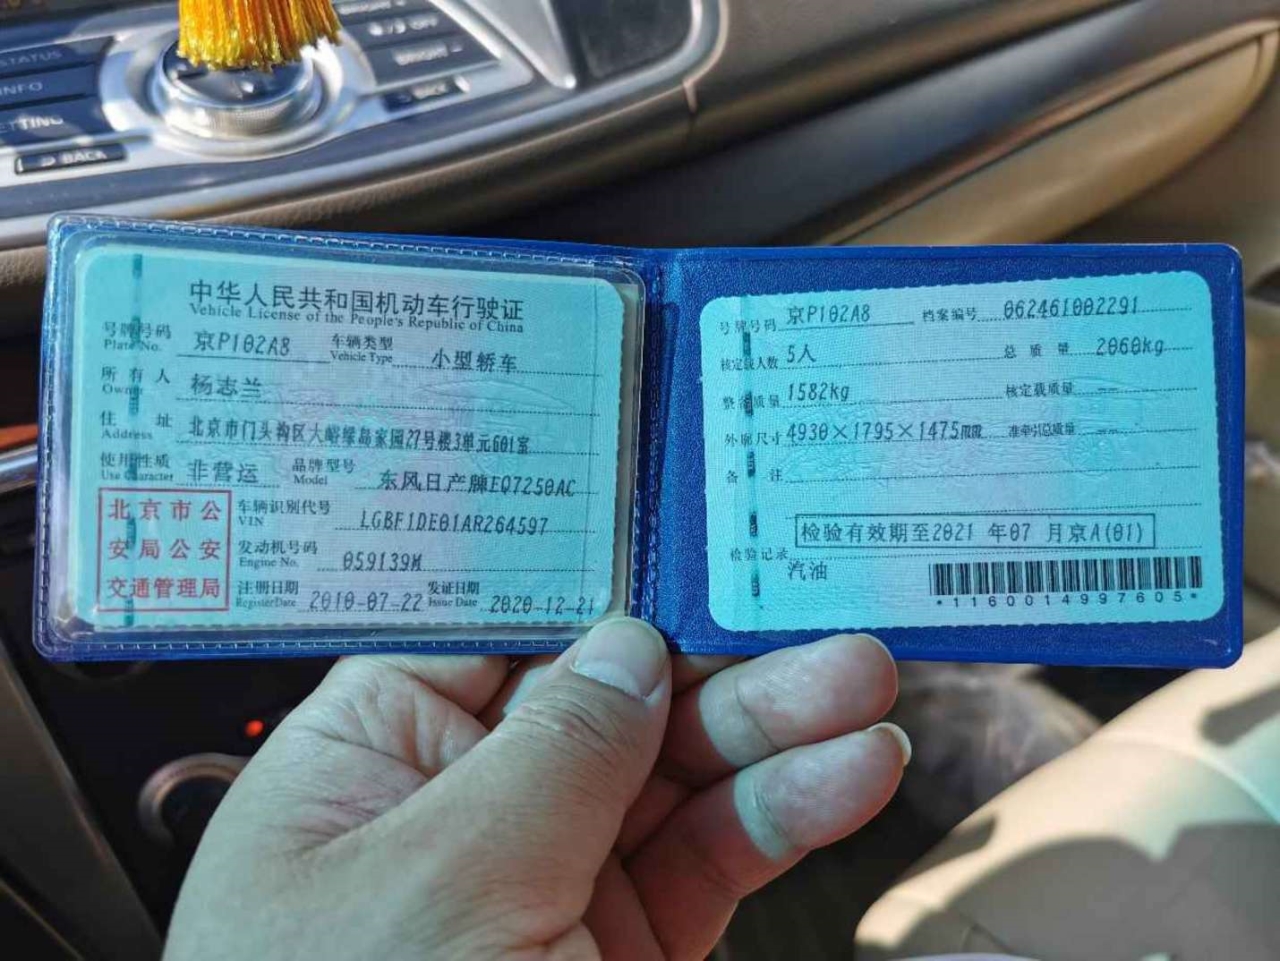 STATUS
INFO
SETTING
BACK
OFF
BRIGHT -
BACK
中华人民共和国机动车行驶证
Vehicle License of the People's Republic of China
号牌号码 京P102A8 车辆类型 小型轿车
Plate No. Vehicle Type
所有人 杨志兰
Owner
住址 北京市门头沟区大峪绿岛家园27号楼3单元601室
Address
使用性质 非营运 品牌型号 东风日产牌EQ7250AC
Use Character Model
北京市公
安局公安
交通管理局
车辆识别代号 LGBF1DE01AR264597
VIN
发动机号码 059139M
Engine No.
注册日期 2010-07-22 发证日期 2020-12-21
Register Date Issue Date
号牌号码 京P102A8 档案编号 062461002291
核定载人数 5人 总质量 2060kg
整备质量 1582kg 核定载质量 --
外廓尺寸 4930×1795×1475mm 准牵引总质量 --
备注
检验有效期至2021 年07 月京A(01)
检验记录
汽油
*1160014997605*